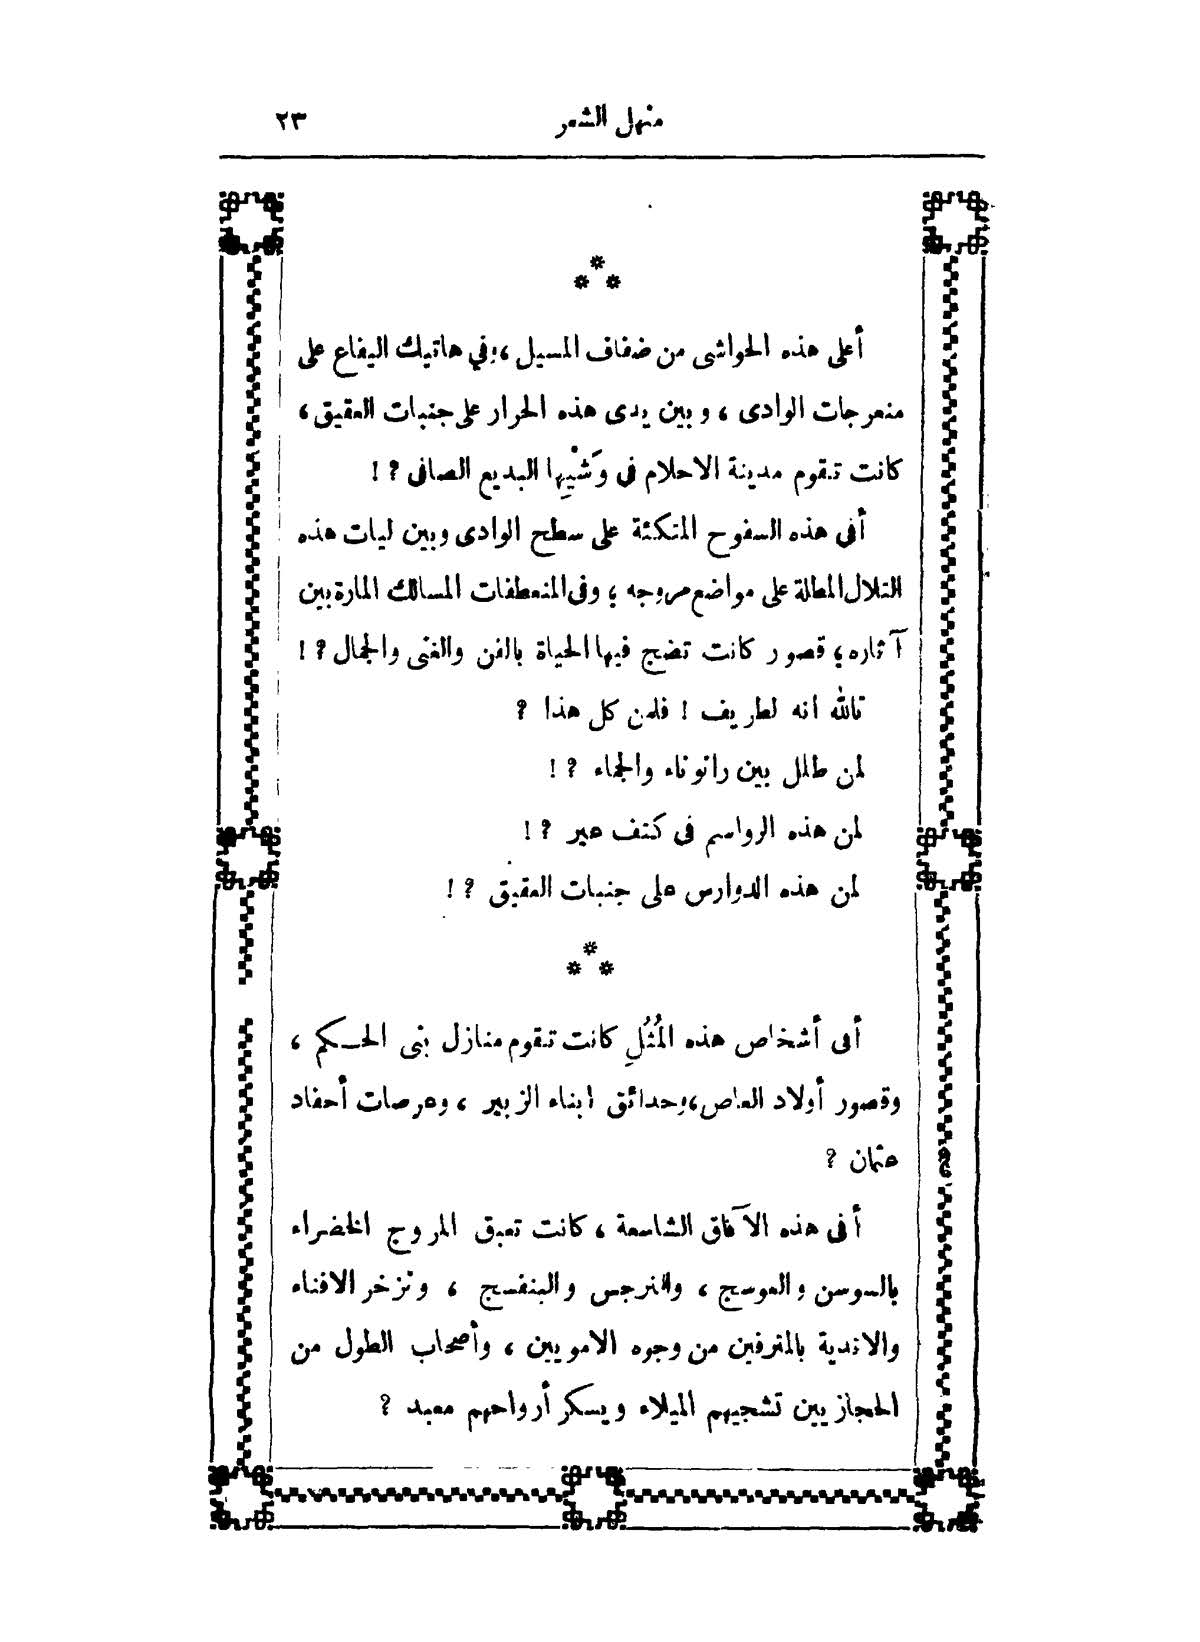 منهل الشعر ٢٣
أعلى هذه الحواشى من ضفاف المسيل ، وفي هاتيك اليفاع على
منعرجات الوادى ، وبين يدى هذه الحرار على جنبات العقيق ،
كانت تقوم مدينة الاحلام فى وَشْيِها البديع الصافى ؟ !
أفى هذه السفوح المتكئة على سطح الوادى وبين ليات هذه
التلال المطلة على مواضع مروجه ؛ وفى المنعطفات المسالك المارة بين
آثاره ؛ قصور كانت تضج فيها الحياة بالفن والغنى والجمال ؟ !
تالله انه لطريف ! فلمن كل هذا ؟
لمن طلل بين رانوناء والجماء ؟ !
لمن هذه الرواسم فى كنف عير ؟ !
لمن هذه الدوارس على جنبات العقيق ؟ !
أفى أشخاص هذه المُثُلِ كانت تقوم منازل بنى الحكم ،
وقصور أولاد العاص ، وحدائق ابناء الزبير ، وعرصات أحفاد
عثمان ؟
أفى هذه الآفاق الشاسعة ، كانت تعبق المروج الخضراء
بالسوسن والعوسج ، والنرجس والبنفسج ، وتزخر الافناء
والاندية بالمترفين من وجوه الامويين ، وأصحاب الطول من
الحجازيين تشجيهم الميلاء ويسكر أرواحهم معبد ؟